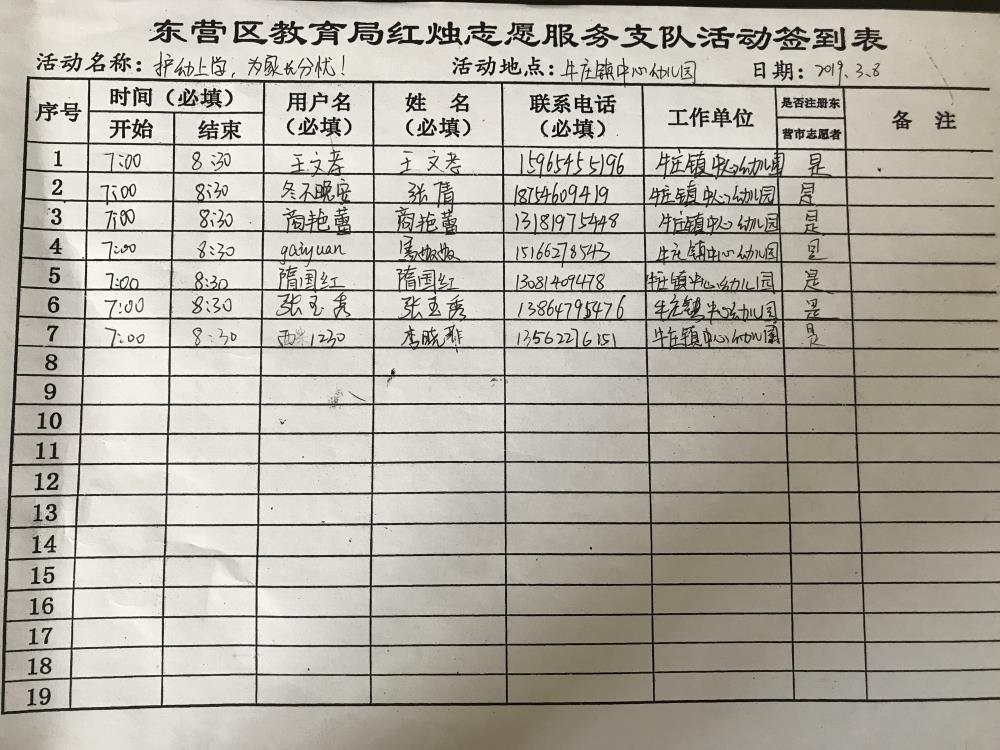 东营区教育局红烛志愿服务支队活动签到表
活动名称：护幼上学，为家长分忧！ 活动地点：牛庄镇中心幼儿园 日期：2019.3.8
序号 时间（必填） 用户名（必填） 姓 名（必填） 联系电话（必填） 工作单位 是否注册东营市志愿者 备 注
开始 结束
1 7:00 8:30 王文孝 王文孝 15965455196 牛庄镇中心幼儿园 是
2 7:00 8:30 冬不晚安 张倩 18754609419 牛庄镇中心幼儿园 是
3 7:00 8:30 商艳蕾 商艳蕾 13181975448 牛庄镇中心幼儿园 是
4 7:00 8:30 gaiyuan 15166278543 牛庄镇中心幼儿园 是
5 7:00 8:30 隋国红 隋国红 13081409478 牛庄镇中心幼儿园 是
6 7:00 8:30 张玉秀 张玉秀 13864795476 牛庄镇中心幼儿园 是
7 7:00 8:30 1230 李晓 13562276151 牛庄镇中心幼儿园 是
8
9
10
11
12
13
14
15
16
17
18
19